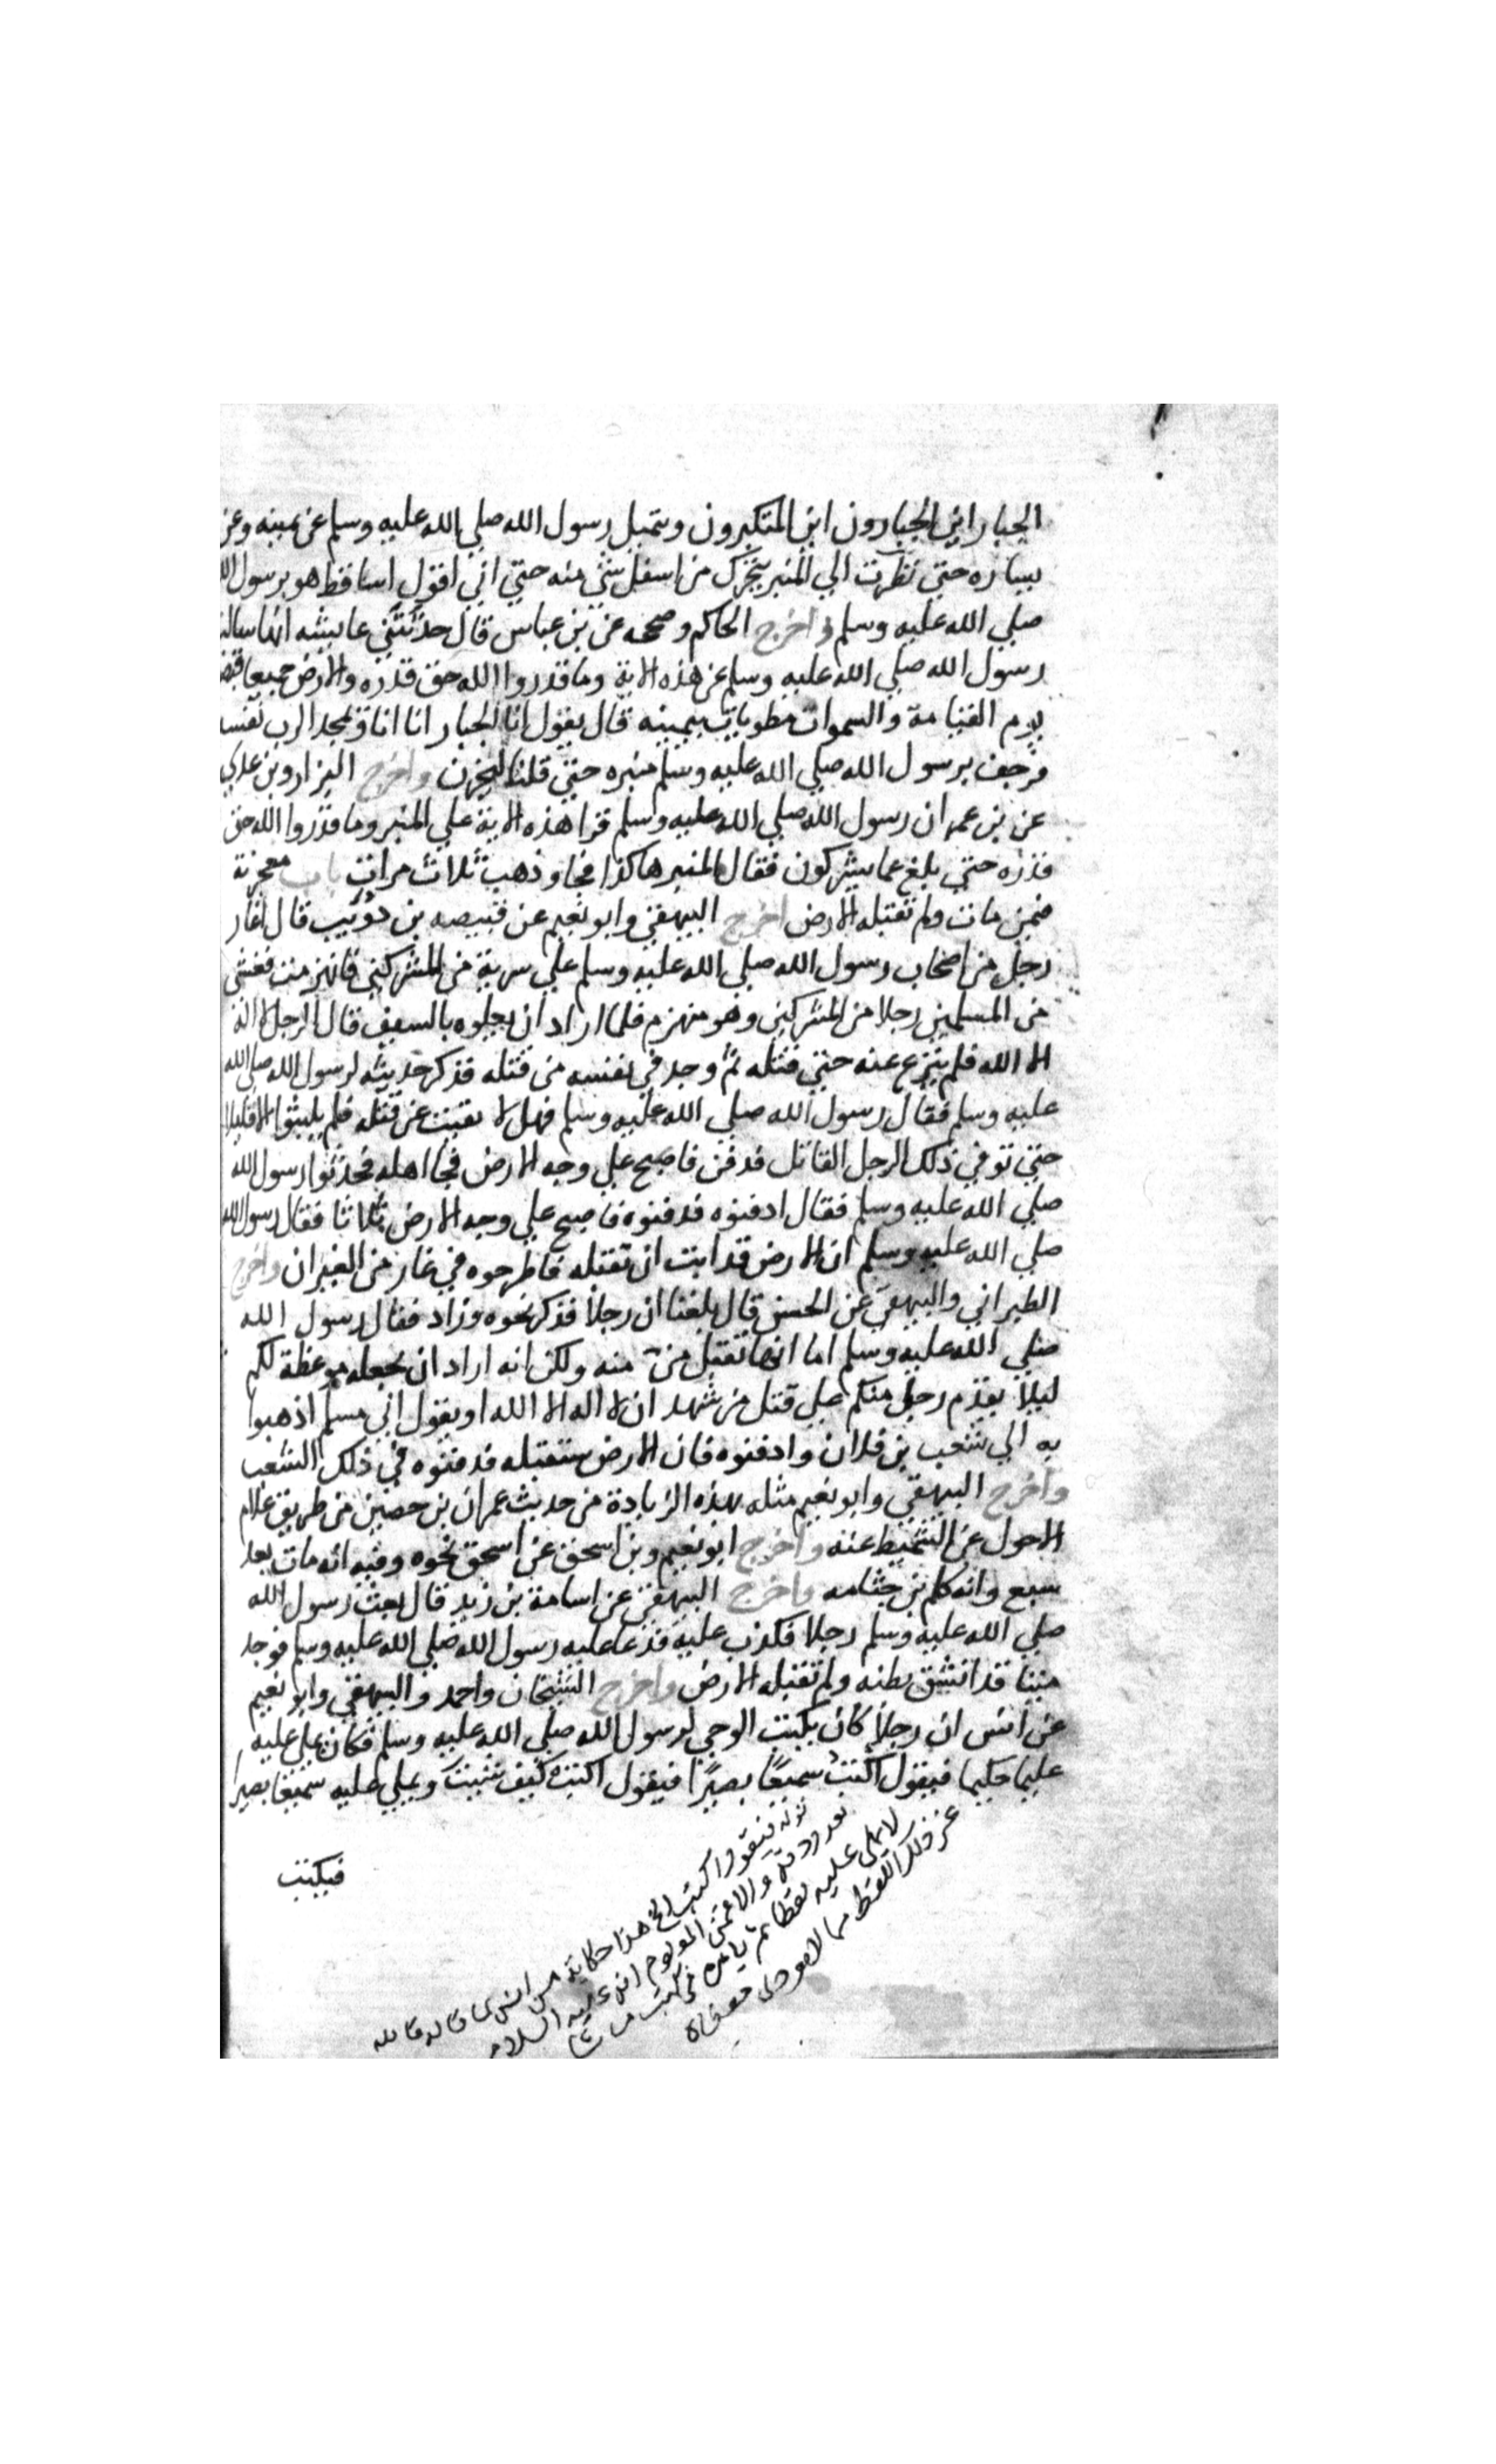 الجبار اين الجبارون اين المتكبرون ويتميل رسول الله صلي الله عليه وسلم عن يمينه وعن
يساره حتي نظرت الي المنبر يتحرك من اسفل شي منه حتي اني اقول اساقط هو برسول الله
صلي الله عليه وسلم واخرج الحاكم وصححه عن بن عباس قال حدثتني عايشه انها سالت
رسول الله صلي الله عليه وسلم عن هذه الاية وما قدروا الله حق قدره والارض جميعا قبضته
يوم القيامة والسموات مطويات بيمينه قال يقول انا الجبار انا انا ويمجد الرب نفسه
فرجف برسول الله صلي الله عليه وسلم منبره حتي قلنا ليخرن واخرج البزار وبن عدي
عن بن عمر ان رسول الله صلي الله عليه وسلم قرا هذه الاية علي المنبر وما قدروا الله حق
قدره حتي بلغ عما يشركون فقال المنبر هاكذا فجا وذهب ثلاث مرات باب معجزته
فيمن مات ولم تقبله الارض اخرج البيهقي وابو نعيم عن قبيصه بن ذؤيب قال اغار
رجل من اصحاب رسول الله صلي الله عليه وسلم علي سرية من المشركين فانهزمت فغشي
من المسلمين رجلا من المشركين وهو منهزم فلما اراد ان يعلوه بالسيف قال الرجل لا اله
الا الله فلم ينزع عنه حتي قتله ثم وجد في نفسه من قتله فذكر حديثه لرسول الله صلي الله
عليه وسلم فقال رسول الله صلي الله عليه وسلم فهل لا نقبت عن قلبه فلم يلبثوا الا قليلا
حتي توفي ذلك الرجل القاتل فدفن فاصبح علي وجه الارض فجا اهله فحدثوا رسول الله
صلي الله عليه وسلم فقال ادفنوه فدفنوه فاصبح علي وجه الارض ثلاثا فقال رسول الله
صلي الله عليه وسلم ان الارض قد ابت ان تقبله فاطرحوه في غار من الغيران واخرج
الطبراني والبيهقي عن الحسن قال بلغنا ان رجلا فذكر نحوه وزاد فقال رسول الله
صلي الله عليه وسلم اما انها تقبل من منه ولكن انه اراد ان يجعله موعظة لكم
ليلا يقدم رجل منكم علي قتل من شهد ان لا اله الا الله او يقول اني مسلم اذهبوا
به الي شعب بن فلان وادفنوه فان الارض ستقبله فدفنوه في ذلك الشعب
واخرج البيهقي وابو نعيم مثله بهذه الزيادة من حديث عمران بن حصين من طريق علام
الاحول عن الشميط عنه واخرج ابو نعيم وبن اسحق عن اسحق نحوه وفيه انه مات بعد
سبع وانه كلم بن جثامه واخرج البيهقي عن اسامة بن زيد قال بعث رسول الله
صلي الله عليه وسلم رجلا فكذب عليه فدعا عليه رسول الله صلي الله عليه وسلم فوجد
ميتا قد انشق بطنه ولم تقبله الارض واخرج الشيخان واحمد والبيهقي وابو نعيم
عن انس ان رجلا كان يكتب الوحي لرسول الله صلي الله عليه وسلم فكان يملي عليه
عليما حكيما فيقول اكتب سميعا بصيرا فيقول اكتب كيف شيت ويملي عليه سميعا بصيرا
فيكتب
اكتب الخ هذا حكاية